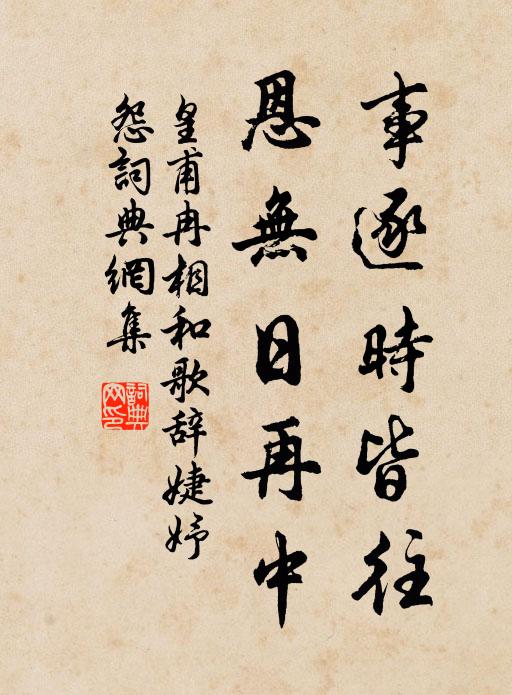 事逐時皆往
恩無日再中
皇甫冉相和歌辞婕妤
怨詞典網集
詞典
网印